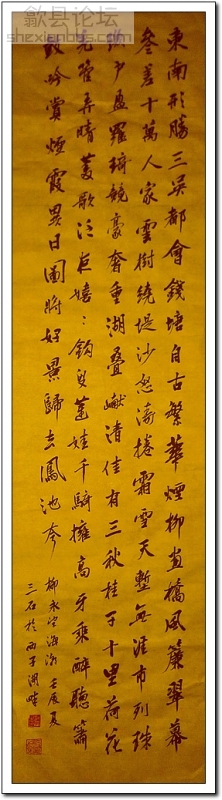 歙县论坛
shexianbbs.com
東南形勝三吳都會錢塘自古繁華煙柳畫橋風簾翠幕
叁差十萬人家雲樹繞堤沙怒濤捲霜雪天塹無涯市列珠
璣户盈羅琦競豪奢重湖叠巘清佳有三秋桂子十里荷花
羌管弄晴菱歌泛夜嬉〻釣叟蓮娃千騎擁高牙乘醉聽簫
鼓吟賞煙霞異日圖將好景歸去鳳池夸
柳永望海潮 壬辰夏
三石於西子湖畔